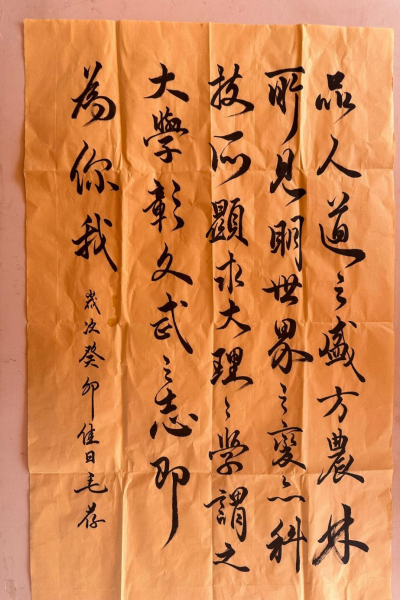 品人道之盛方農林
所見明世界之變亦科
技所顯求大理之學謂之
大學彰文武之志即
為你我
歲次癸卯佳日毛